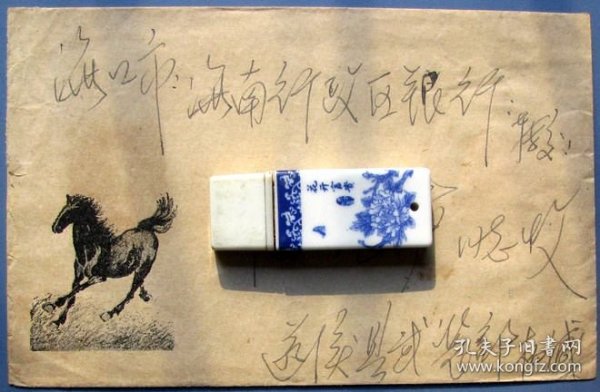 海口市: 海南行政区银行.
转交:
花开富贵
同志收
县武装部
孔夫子旧书网
www.kongfz.com